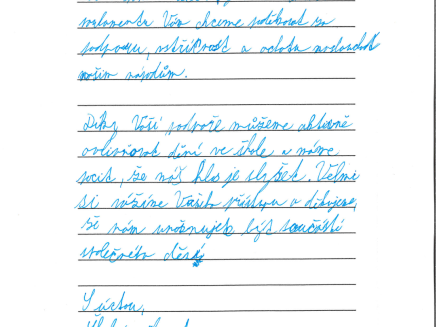 parlamentu Vám chceme poděkovat za
podporu, vstřícnost a ochotu naslouchat
našim názorům.
Díky Vaší podpoře můžeme aktivně
ovlivňovat dění ve škole a máme
pocit, že náš hlas je slyšet. Velmi
si vážíme Vašeho přístupu a děkujeme,
že nám umožnujete být součástí
společného
S úctou,